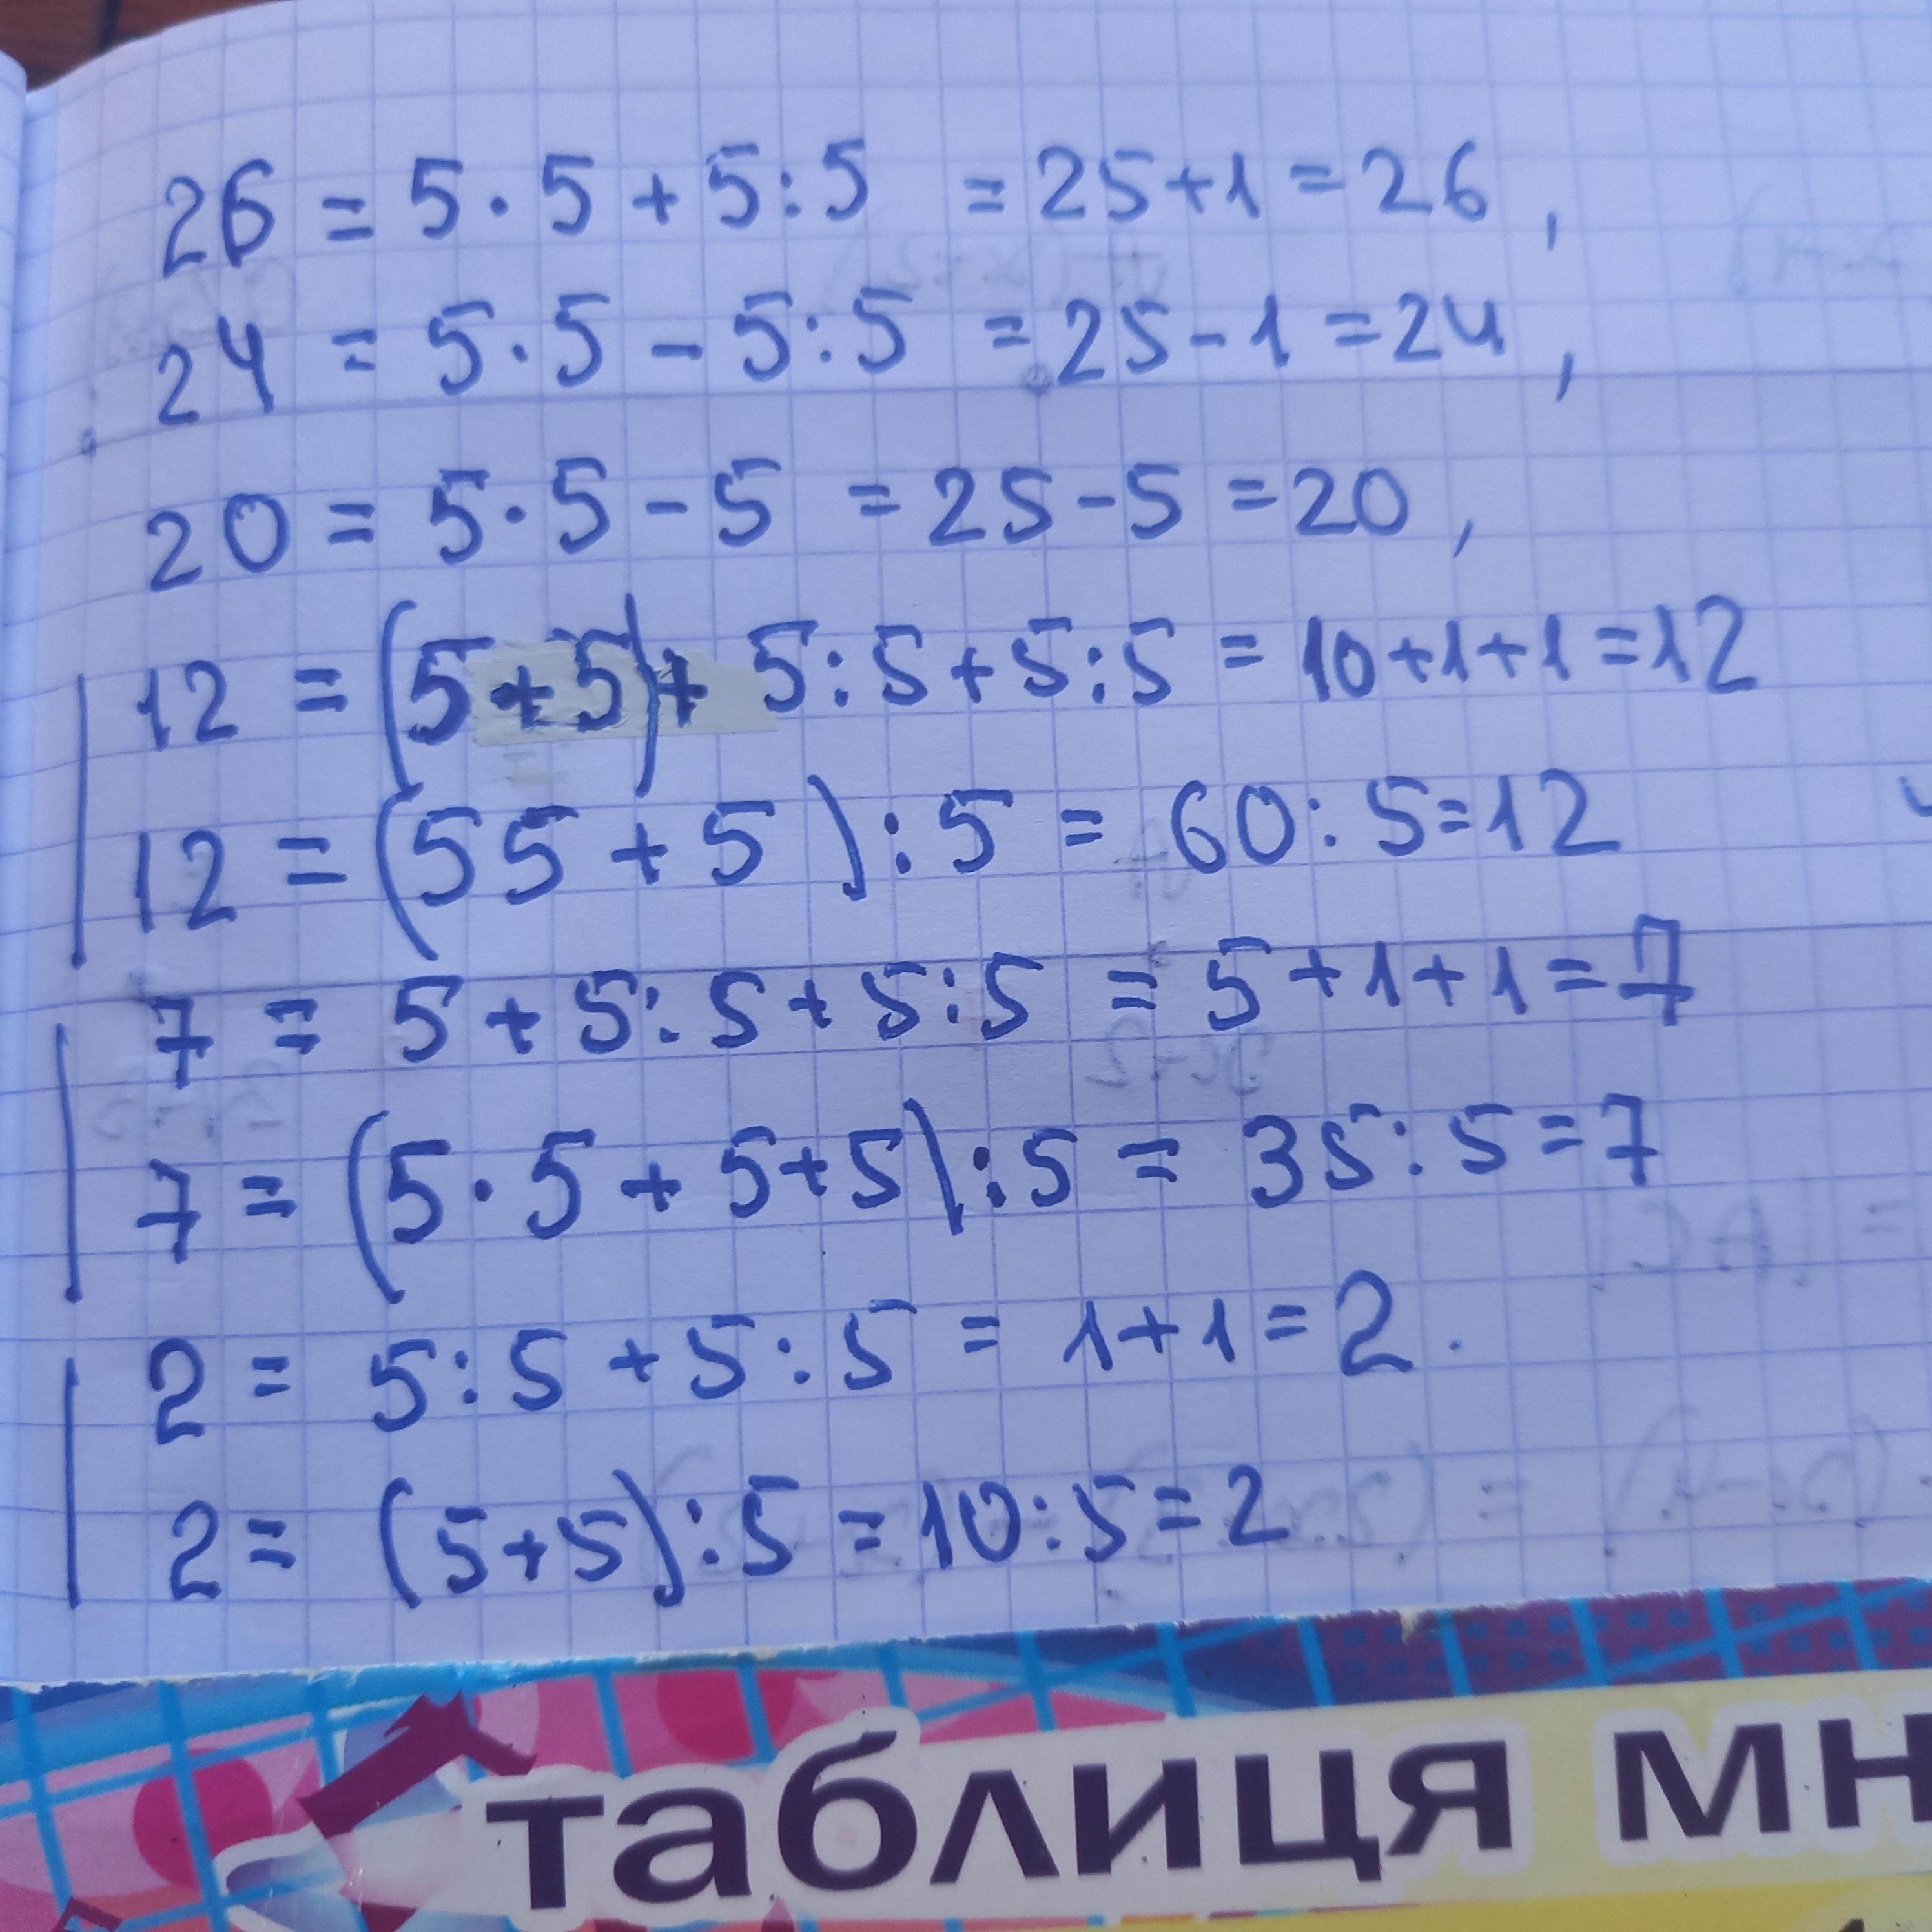 26 = 5·5+5:5 =25+1=26,
24 = 5·5-5:5 =25-1=24,
20 = 5·5-5 =25-5=20,
12 = (5+5)+5:5+5:5=10+1+1=12
12 = (55+5):5= 60:5=12
7 = 5+5:5+5:5 = 5+1+1=7
7 = (5·5+5+5):5= 35:5=7
2 = 5:5+5:5= 1+1=2.
2= (5+5):5=10:5=2
таблиця мн